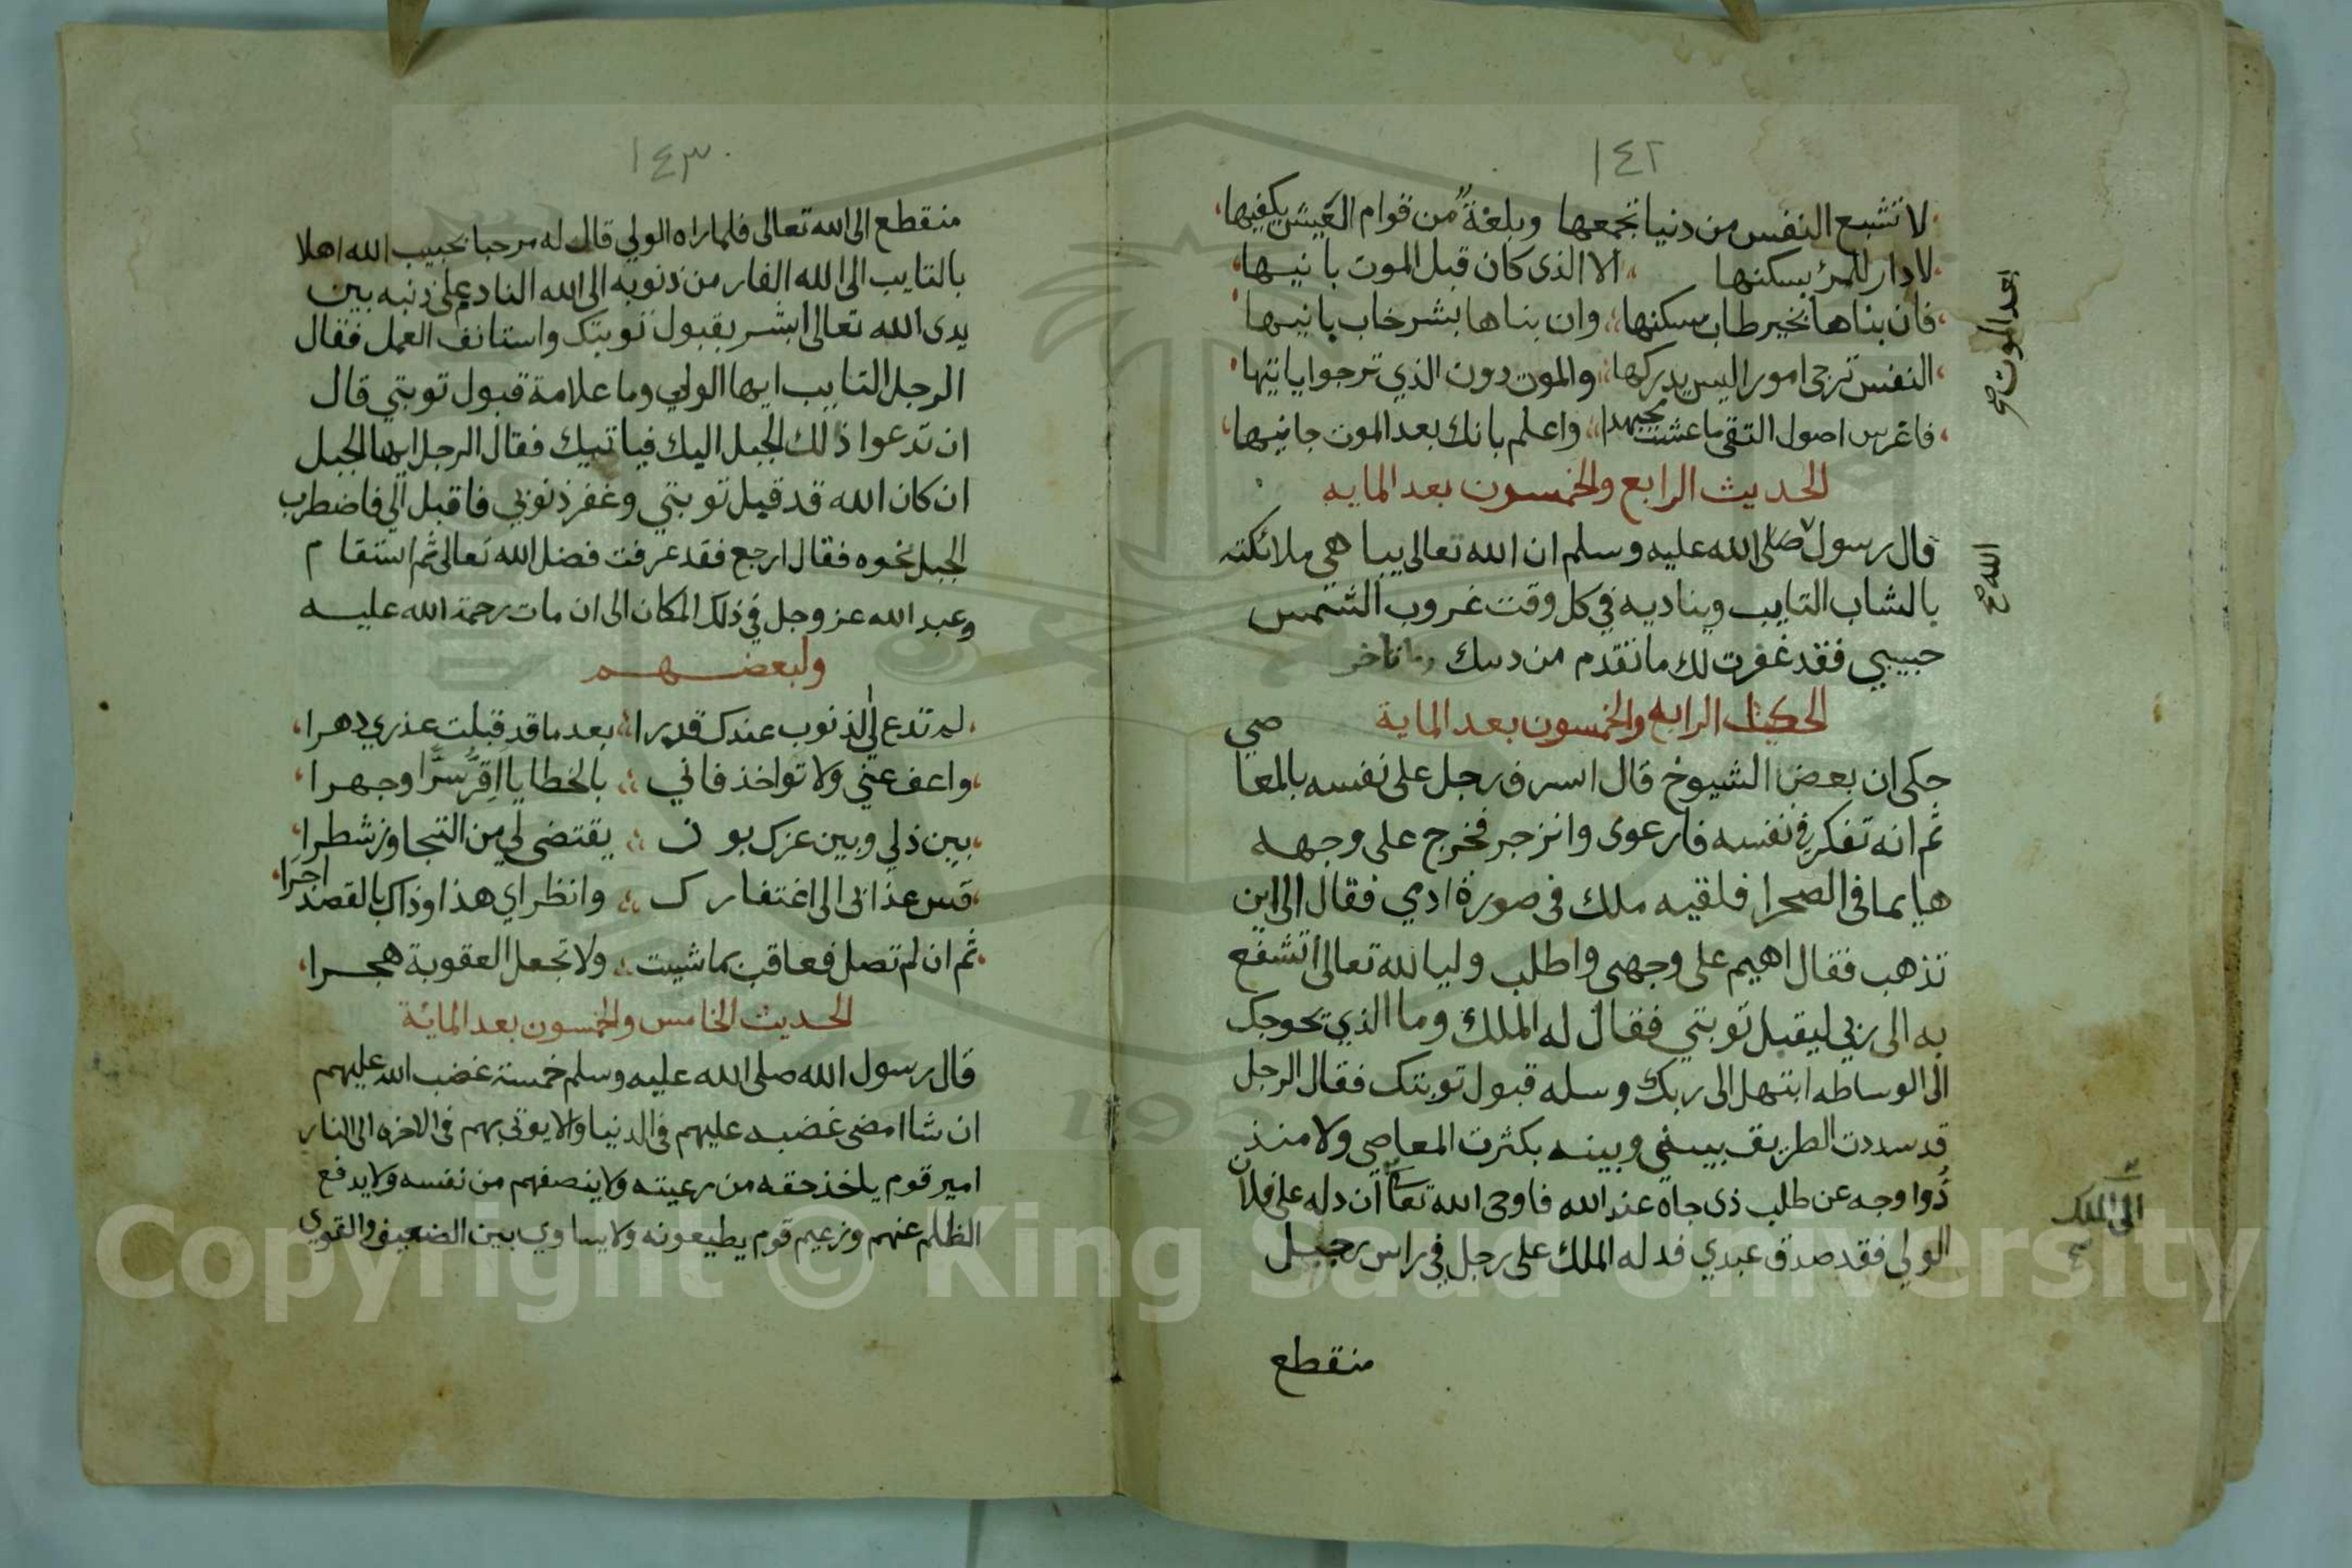 ١٤٢
لا تشبع النفس من دنيا تجمعها وبلغة من قوام العيش يكفيها
لا دار للمرئ يسكنها الا الذى كان قبل الموت بانيها
بعد الموت صح
فان بناها بخير طاب مسكنها وان بناها بشر خاب بانيها
النفس ترجى امورا ليس يدركها والموت دون الذي ترجوا ياتيها
فاغرس اصول التقى ما عشت مجتهدا واعلم بانك بعد الموت جانيها
الحديث الرابع والخمسون بعد المايه
قال رسول صلى الله عليه وسلم ان الله تعالى يباهي ملائكته
الله صح
بالشاب التايب ويناديه في كل وقت غروب الشمس
حبيبي فقد غفرت لك ما تقدم من دنبك وما تاخر
الحكاية الرابع والخمسون بعد الماية
حكى ان بعض الشيوخ قال اسرف رجل على نفسه بالمعا صي
ثم انه تفكر في نفسه فارعوى وانزجر فخرج على وجهه
هايما فى الصحرا فلقيه ملك فى صورة ادمي فقال الى اين
تذهب فقال اهيم على وجهى واطلب وليا لله تعالى اتشفع
به الى ربي ليقبل توبتي فقال له الملك وما الذي يحوجك
الى الوساطه ابتهل الى ربك وسله قبول توبتك فقال الرجل
قد سددت الطريق بيني وبينه بكثرت المعاصي ولا منذ
ذوا وجه عن طلب ذى جاه عند الله فاوحى الله تعا ان دله على فلان
الى الملك صح
الولي فقد صدق عبدي فدله الملك على رجل في راس جبل
منقطع
١٤٣
منقطع الى الله تعالى فلما راه الولي قال له مرحبا بحبيب الله اهلا
بالتايب الى الله الفار من ذنوبه الى الله النادم على ذنبه بين
يدى الله تعالى ابشر بقبول توبتك واستانف العمل فقال
الرجل التايب ايها الولي وما علامة قبول توبتي قال
ان تدعوا ذلك الجبل اليك فياتيك فقال الرجل ايها الجبل
ان كان الله قد قبل توبتي وغفر ذنوبي فاقبل الي فاضطرب
الجبل نحوه فقال ارجع فقد عرفت فضل الله تعالى ثم استقام
وعبد الله عز وجل في ذلك المكان الى ان مات رحمة الله عليه
ولبعضهم
لم تدع لي الذنوب عندك قدرا بعد ما قد قبلت عذري دهرا
واعف عني ولا تواخذ فاني بالخطايا اقر سرا وجهرا
بين ذلي وبين عزك بون يقتضى لي من التجاوز شطرا
قس عذابى الى اغتفارك وانظر اي هذا وذاك بالقصد احرا
ثم ان لم تصل فعاقب بما شيت ولا تجعل العقوبة هجرا
الحديث الخامس والخمسون بعد المائة
قال رسول الله صلى الله عليه وسلم خمسة غضب الله عليهم
ان شا امضى غضبه عليهم فى الدنيا والا يوتى بهم فى الاخره الى النار
امير قوم ياخذ حقه من رعيته ولا ينصفهم من نفسه ولا يدفع
الظلم عنهم وزعيم قوم يطيعونه ولا يساوي بين الضعيف والقوي
Copyright © King Saud University
1957